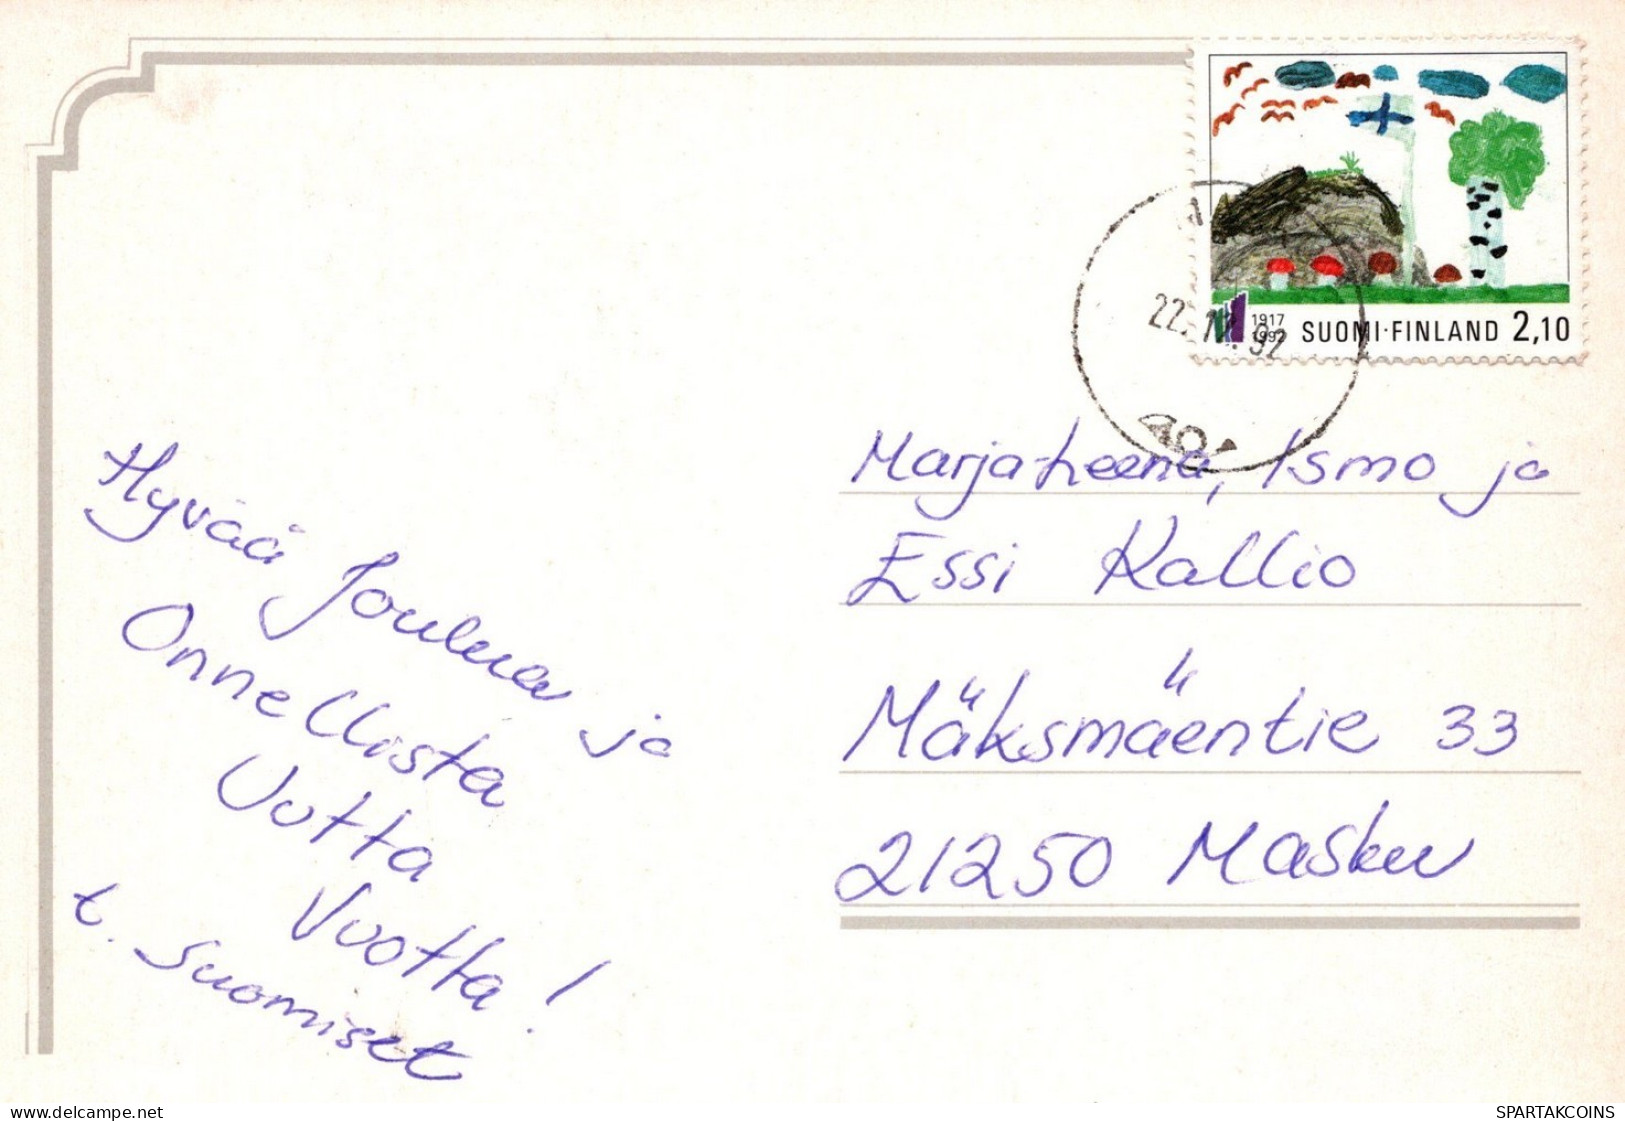 1917
1992
SUOMI·FINLAND 2,10
22.12.92
Hyvää Joulua ja
Onnellista
Uutta
Vuotta!
t. Suomiset
Marjatleena, Ismo ja
Essi Kallio
Mäksmäentie 33
21250 Masku
delcampe.net
SPARTAKCOINS